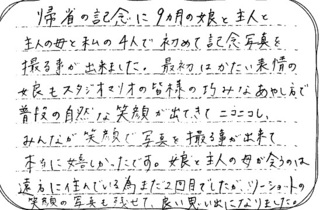 帰省の記念に9カ月の娘と主人と
主人の母と私の4人で初めて記念写真を
撮る事が出来ました。最初はかたい表情の
娘もスタジオマリオの皆様の巧みなあやし方で
普段の自然な笑顔が出てきてニコニコし、
みんなが笑顔で写真を撮る事が出来て
本当に嬉しかったです。娘と主人の母が会うのは
遠方に住んでいる為まだ2回目でしたが、ツーショットの
笑顔の写真も残せて、良い思い出になりました。